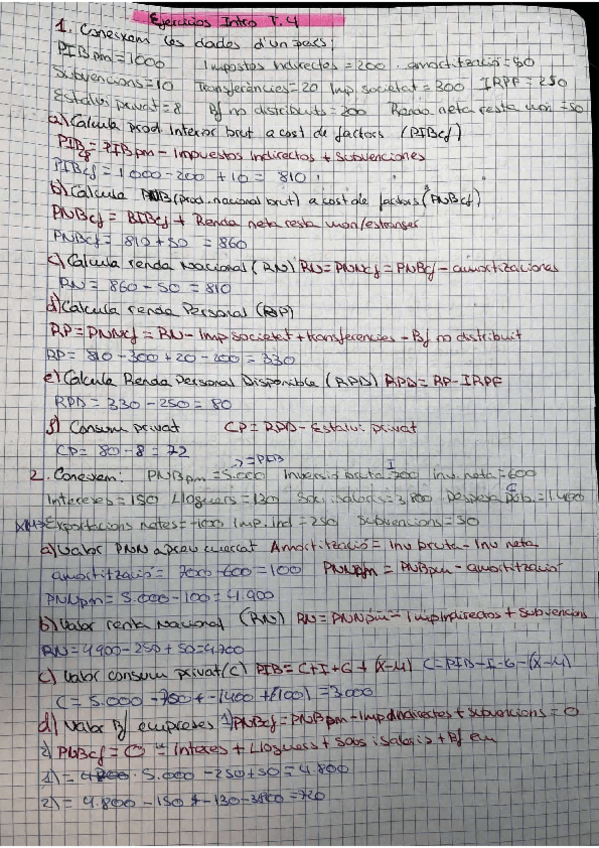 Ejercicios Intro T.4
1. Coneixem les dades d'un país:
PIBpm=1000 Impostos Indirectes=200 amortització=50
Subvencions=10 Transferències=20 Imp. societat=300 IRPF=250
Estalvi privat=8 Bf no distribuits=200 Renda neta resta mon=50
a) Calcula prod Interior brut a cost de factors (PIBcf)
PIBcf=PIBpm-Impuestos Indirectos + Subvenciones
PIBcf=1000-200+10=810
b) Calcula PNB (prod. nacional brut) a cost de factors (PNBcf)
PNBcf=BIBcf + Renda neta resta mon/estranger
PNBcf=810+50=860
c) Calcula renda Nacional (RN) RN=PNNcf=PNBcf-amortizaciones
RN=860-50=810
d) Calcula renda Personal (RP)
RP=PNNcf=RN-Imp societat+transferencies-Bf no distribuit
RP=810-300+20-200=330
e) Calcula Renda Personal Disponible (RPD) RPD=RP-IRPF
RPD=330-250=80
f) Consum privat CP=RPD-Estalvi privat
CP=80-8=72
=>=PIB
2. Coneixem: PNBpm=5.000 Inversió bruta=700 I Inv. neta=600
Interesos=150 Lloguers=130 Sous i salaris=3.800 Despesa Púb.=1400 G
XM=>Exportacions netes=-100 Imp. Ind=250 Subvencions=50
a) Valor PNN a preu mercat Amortització=Inv bruta-Inv neta
amortització=700-600=100 PNNpm=PNBpm-amortització
PNNpm=5.000-100=4.900
b) Valor renta Nacional (RN) RN=PNNpm-Imp Indirectos+Subvencions
RN=4900-250+50=4700
c) Valor consum privat(C) PIB=C+I+G+(X-M) C=PIB-I-G-(X-M)
C=5.000-700-1400+(100)=3000
d) Valor Bf empreses 1) PNBcf=PNBpm-Imp Indirectes+subvencions=O
2) PNBcf=O=Interes+Lloguers+Sous i Salaris+Bf em
1)=5.000-250+50=4.800
2)=4.800-150-130-3800=720